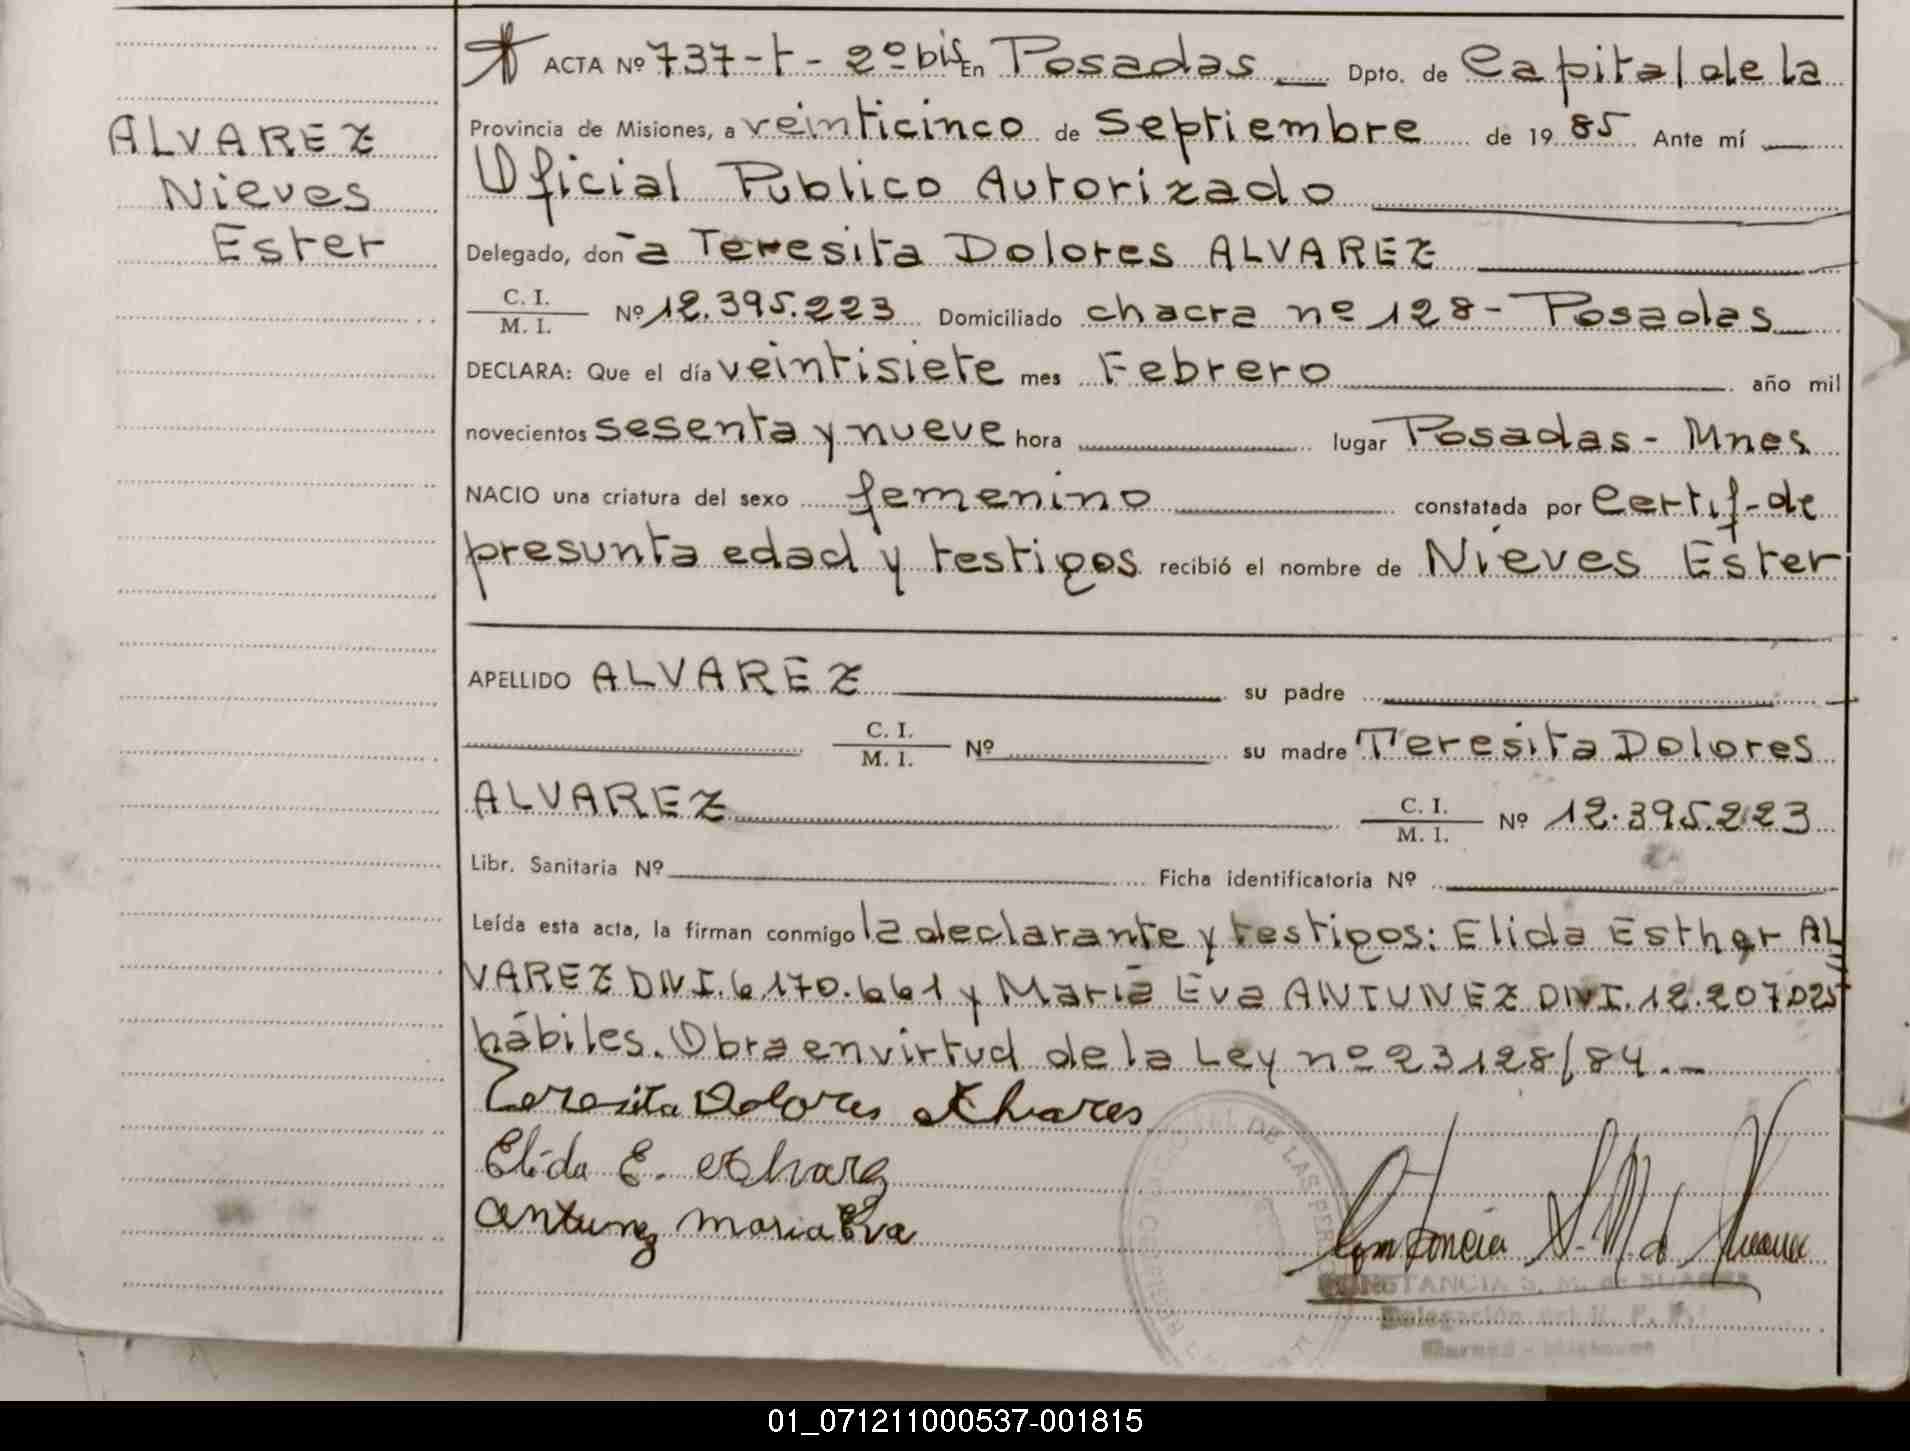 ALVAREZ
Nieves
Ester
ACTA Nº 737-t-2º bis En Posadas Dpto. de Capital de la
Provincia de Misiones, a veinticinco de Septiembre de 1985 Ante mí
Oficial Publico Autorizado
Delegado, doña Teresita Dolores ALVAREZ
C. I.
M. I. Nº 12.395.223 Domiciliado chacra nº 128 - Posadas
DECLARA: Que el día veintisiete mes Febrero año mil
novecientos sesenta y nueve hora lugar Posadas - Mnes
NACIO una criatura del sexo femenino constatada por Certif-de
presunta edad y testigos recibió el nombre de Nieves Ester
APELLIDO ALVAREZ su padre
C. I.
M. I. Nº su madre Teresita Dolores
ALVAREZ C. I.
M. I. Nº 12.395.223
Libr. Sanitaria Nº Ficha identificatoria Nº
Leída esta acta, la firman conmigo la declarante y testigos: Elida Esther AL
VAREZ DNI. 6.170.661 y María Eva ANTUNEZ DNI. 12.207.025
hábiles. Obra en virtud de la Ley nº 23128/84.-
Teresita Dolores Alvares
Elida E. Alvarez
Antunez Maria Eva
CONSTANCIA S. M. de SUAREZ
Delegación del R. P. P.
01_071211000537-001815